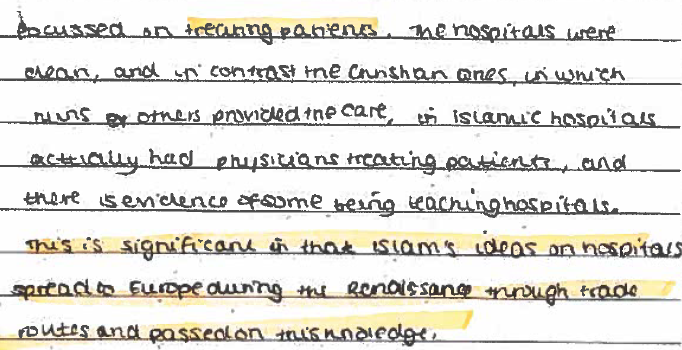 focussed on treating patients. The hospitals were
clean, and in contrast the Christian ones, in which
nuns or others provided the care, in islamic hospitals
actually had physicians treating patients, and
there is evidence of some being teaching hospitals.
This is significant in that Islam's ideas on hospitals
spread to Europe during the Renaissance through trade
routes and passed on this knoledge.